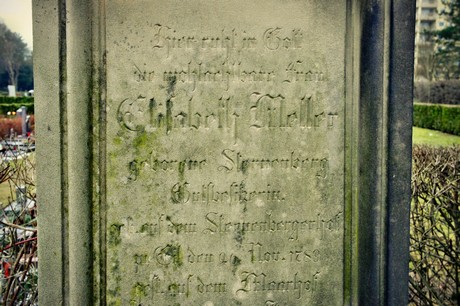 Hier ruht in Gott
die wohlachtbare Frau
Elisabeth Meller
geborene Sternenberg
Gutsbesitzerin.
geb. auf dem Sternenbergerhof
in den Nov. 17
gest. auf dem Moorhof